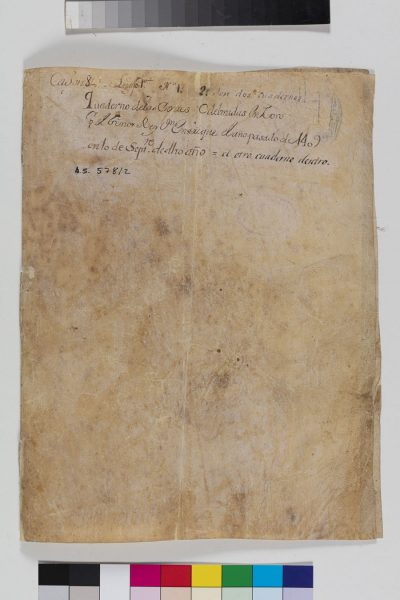 Caxon 8. Legajo 1º Nº 1. 2. Son dos Cuadernos.
Quaderno de las Cortes Celebradas en Toro
el Señor Rey Dn Enrique el año pasado de 1409
en 10 de Septre de dho año = el otro cuaderno dentro.
A.S. 578/2